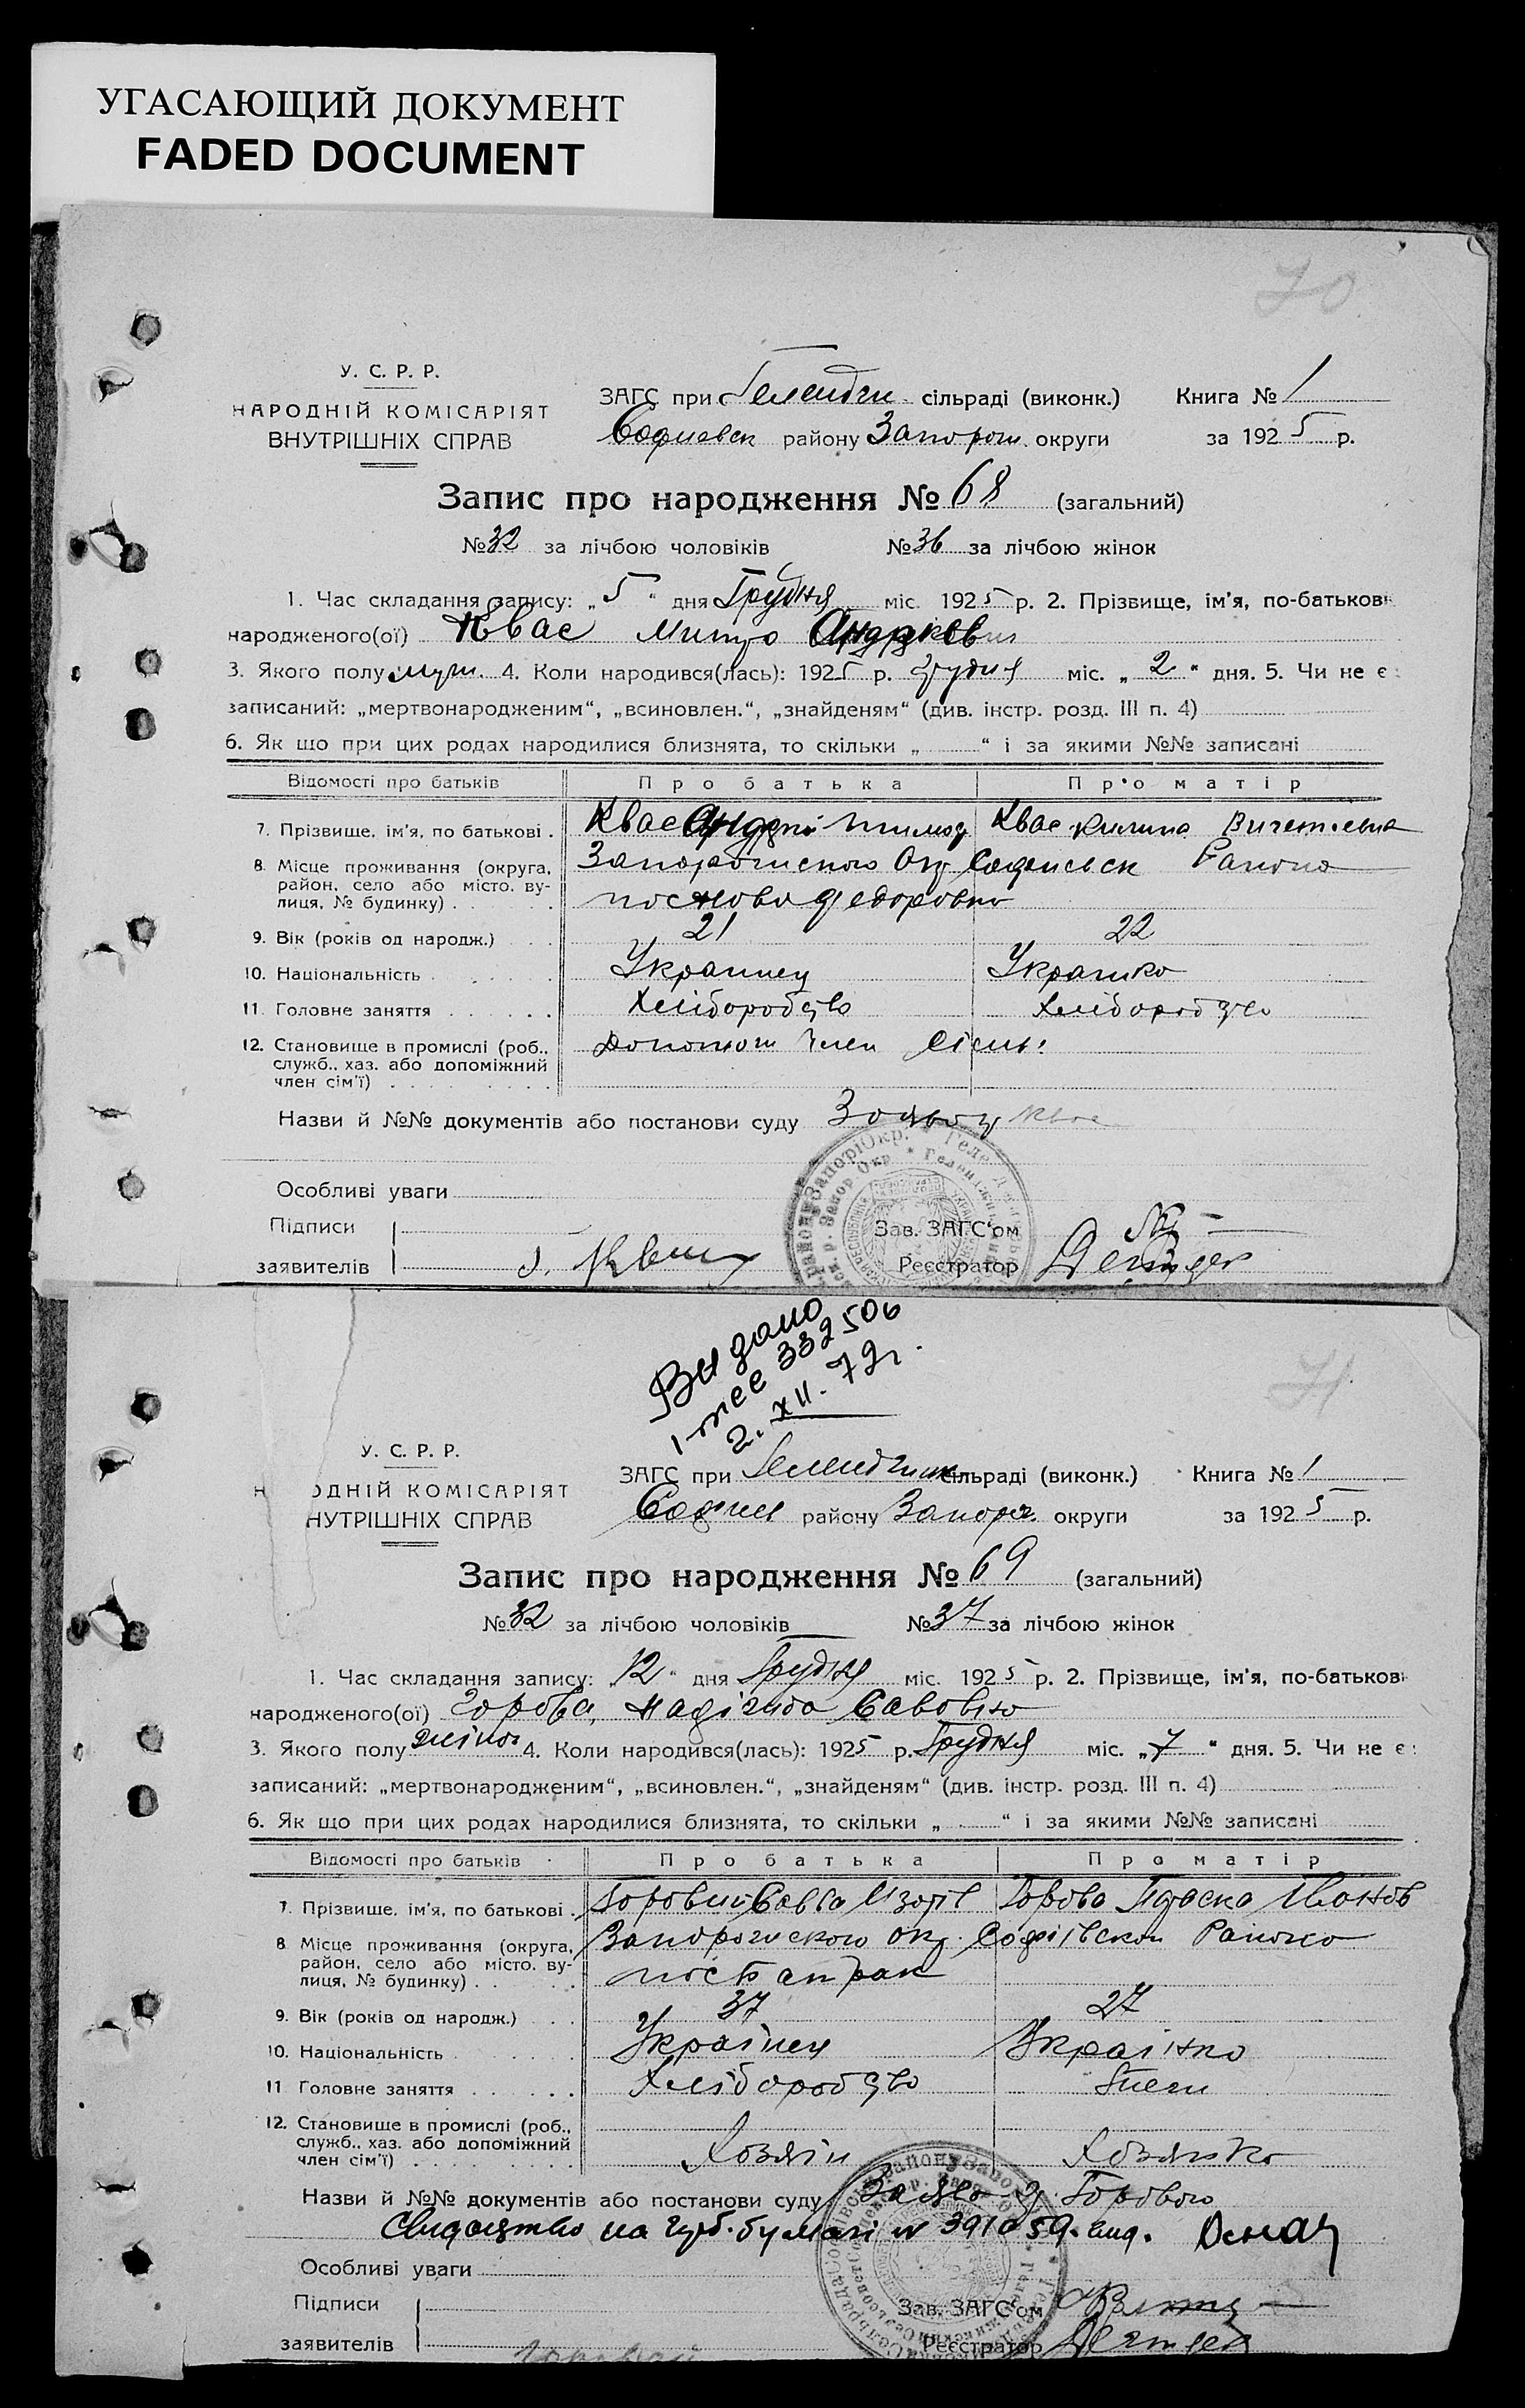 УГАСАЮЩИЙ ДОКУМЕНТ
FADED DOCUMENT
70
У. С. Р. Р.
НАРОДНІЙ КОМІСАРІЯТ
ВНУТРІШНІХ СПРАВ
ЗАГС при сільраді (виконк.) Книга № 1
району Запорож. округи за 1925 р.
Запис про народження № 68 (загальний)
№ 32 за лічбою чоловіків № 36 за лічбою жінок
1. Час складання запису: „5“ дня Грудня міс. 1925 р. 2. Прізвище, ім'я, по-батькові
народженого(ої) Квас Митро Андрієвич
3. Якого полу муж. 4. Коли народився(лась): 1925 р. грудня міс. „2“ дня. 5. Чи не є
записаний: „мертвонародженим“, „всиновлен.“, „знайденям“ (див. інстр. розд. III п. 4)
6. Як що при цих родах народилися близнята, то скільки „ “ і за якими №№ записані
Відомості про батьків Про батька Про матір
7. Прізвище, ім'я, по батькові . Квас Андрій Тимоф Квас Килина
8. Місце проживання (округа, Запорожского Окр Софиевск Району
район, село або місто, ву-
лиця, № будинку) . . Федоровка
9. Вік (років од народж.) . . 21 22
10. Національність . . . Украинец Украинка
11. Головне заняття . . . . . . Хліборобство Хліборобство
12. Становище в промислі (роб., Допомож член Сісмьі
служб., хаз. або допоміжний
член сім'ї) . . . . . . . . .
Назви й №№ документів або постанови суду
Особливі уваги
Підписи Зав. ЗАГС'ом
заявителів Реєстратор
Видано
332506
2. XII. 72г.
71
У. С. Р. Р.
ОДНІЙ КОМІСАРІЯТ
НУТРІШНІХ СПРАВ
ЗАГС при сільраді (виконк.) Книга № 1
району Запорож. округи за 1925 р.
Запис про народження № 69 (загальний)
№ 32 за лічбою чоловіків № 37 за лічбою жінок
1. Час складання запису: „12“ дня Грудня міс. 1925 р. 2. Прізвище, ім'я, по-батькові
народженого(ої) Горова Надіжда Савовна
3. Якого полу жіноч 4. Коли народився(лась): 1925 р. Грудня міс. „7“ дня. 5. Чи не є
записаний: „мертвонародженим“, „всиновлен.“, „знайденям“ (див. інстр. розд. III п. 4)
6. Як що при цих родах народилися близнята, то скільки „ “ і за якими №№ записані
Відомості про батьків Про батька Про матір
7. Прізвище, ім'я, по батькові . Горовий Савва Ізотів Горова Параска Іванов
8. Місце проживання (округа, Запорожского окр. Софіівской Району
район, село або місто, ву-
лиця, № будинку) . .
9. Вік (років од народж.) . . . 37 27
10. Національність Українец Українка
11. Головне заняття . . . . . . Хліборобство
12. Становище в промислі (роб.,
служб., хаз. або допоміжний
член сім'ї) . . . . . . . . . Хозяін Хозяйка
Назви й №№ документів або постанови суду Горового
Свидоцтво на бумагі № 391059
Особливі уваги
Підписи Зав. ЗАГС'ом
заявителів Реєстратор